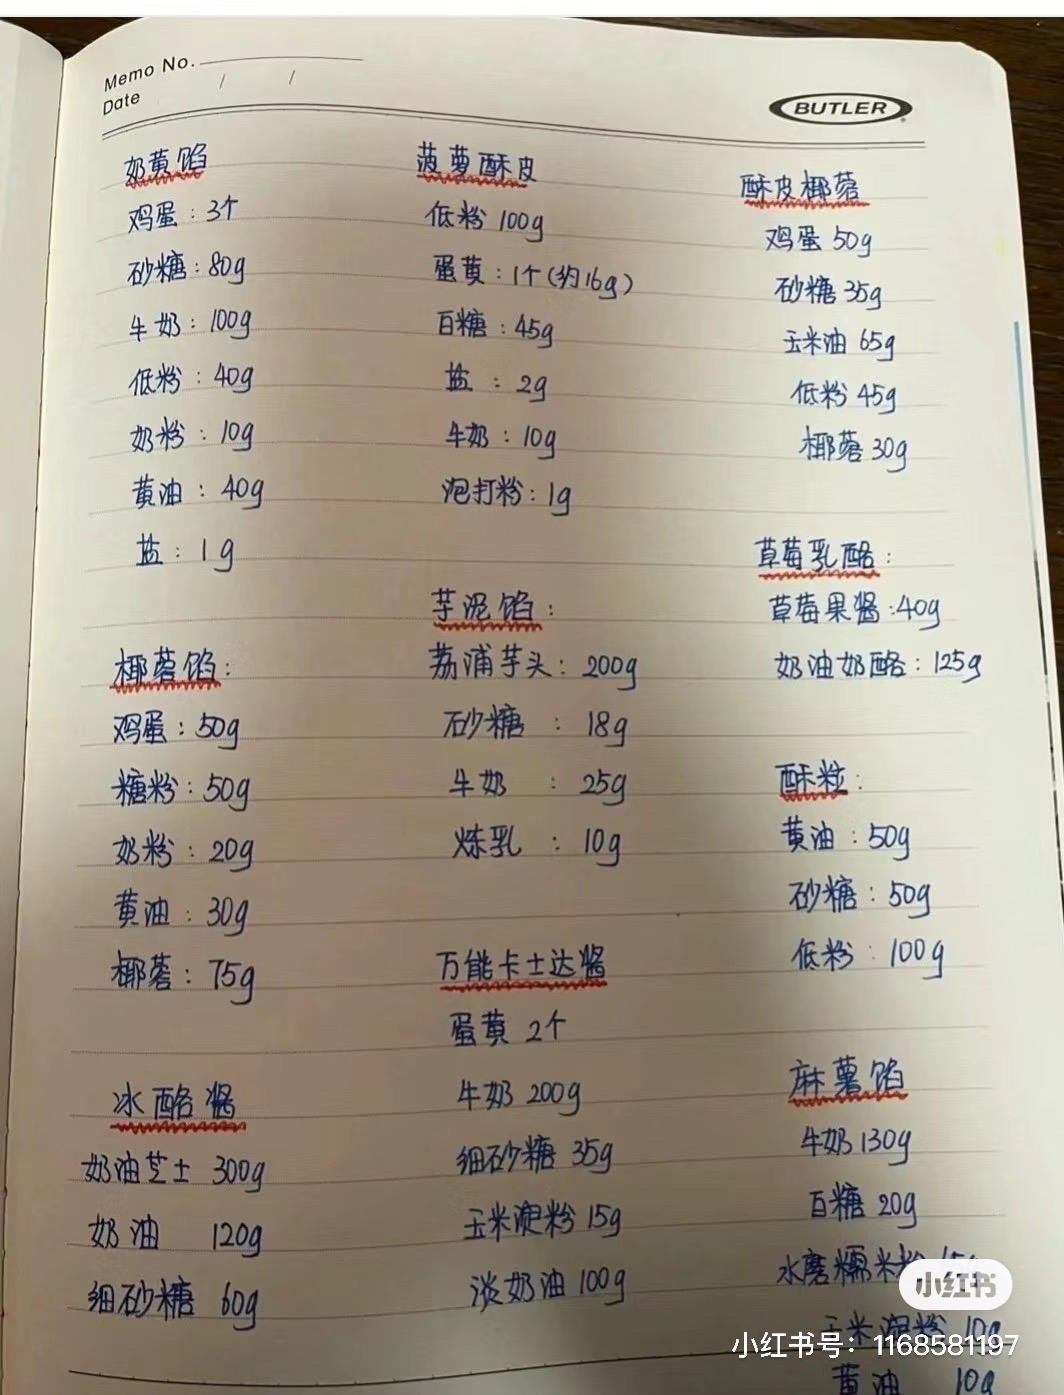 Memo No.
Date / /
BUTLER
奶黄馅
鸡蛋：3个
砂糖：80g
牛奶：100g
低粉：40g
奶粉：10g
黄油：40g
盐：1g
椰蓉馅：
鸡蛋：50g
糖粉：50g
奶粉：20g
黄油：30g
椰蓉：75g
冰酪酱
奶油芝士 300g
奶油 120g
细砂糖 60g
菠萝酥皮
低粉 100g
蛋黄：1个(约16g)
白糖：45g
盐：2g
牛奶：10g
泡打粉：1g
芋泥馅：
荔浦芋头：200g
砂糖：18g
牛奶：25g
炼乳：10g
万能卡士达酱
蛋黄 2个
牛奶 200g
细砂糖 35g
玉米淀粉 15g
淡奶油 100g
酥皮椰蓉
鸡蛋 50g
砂糖 35g
玉米油 65g
低粉 45g
椰蓉 30g
草莓乳酪：
草莓果酱：40g
奶油奶酪：125g
酥粒：
黄油：50g
砂糖：50g
低粉：100g
麻薯馅
牛奶 130g
白糖 20g
水磨糯米粉
玉米淀粉 10g
黄油 10g
小红书
小红书号：1168581197